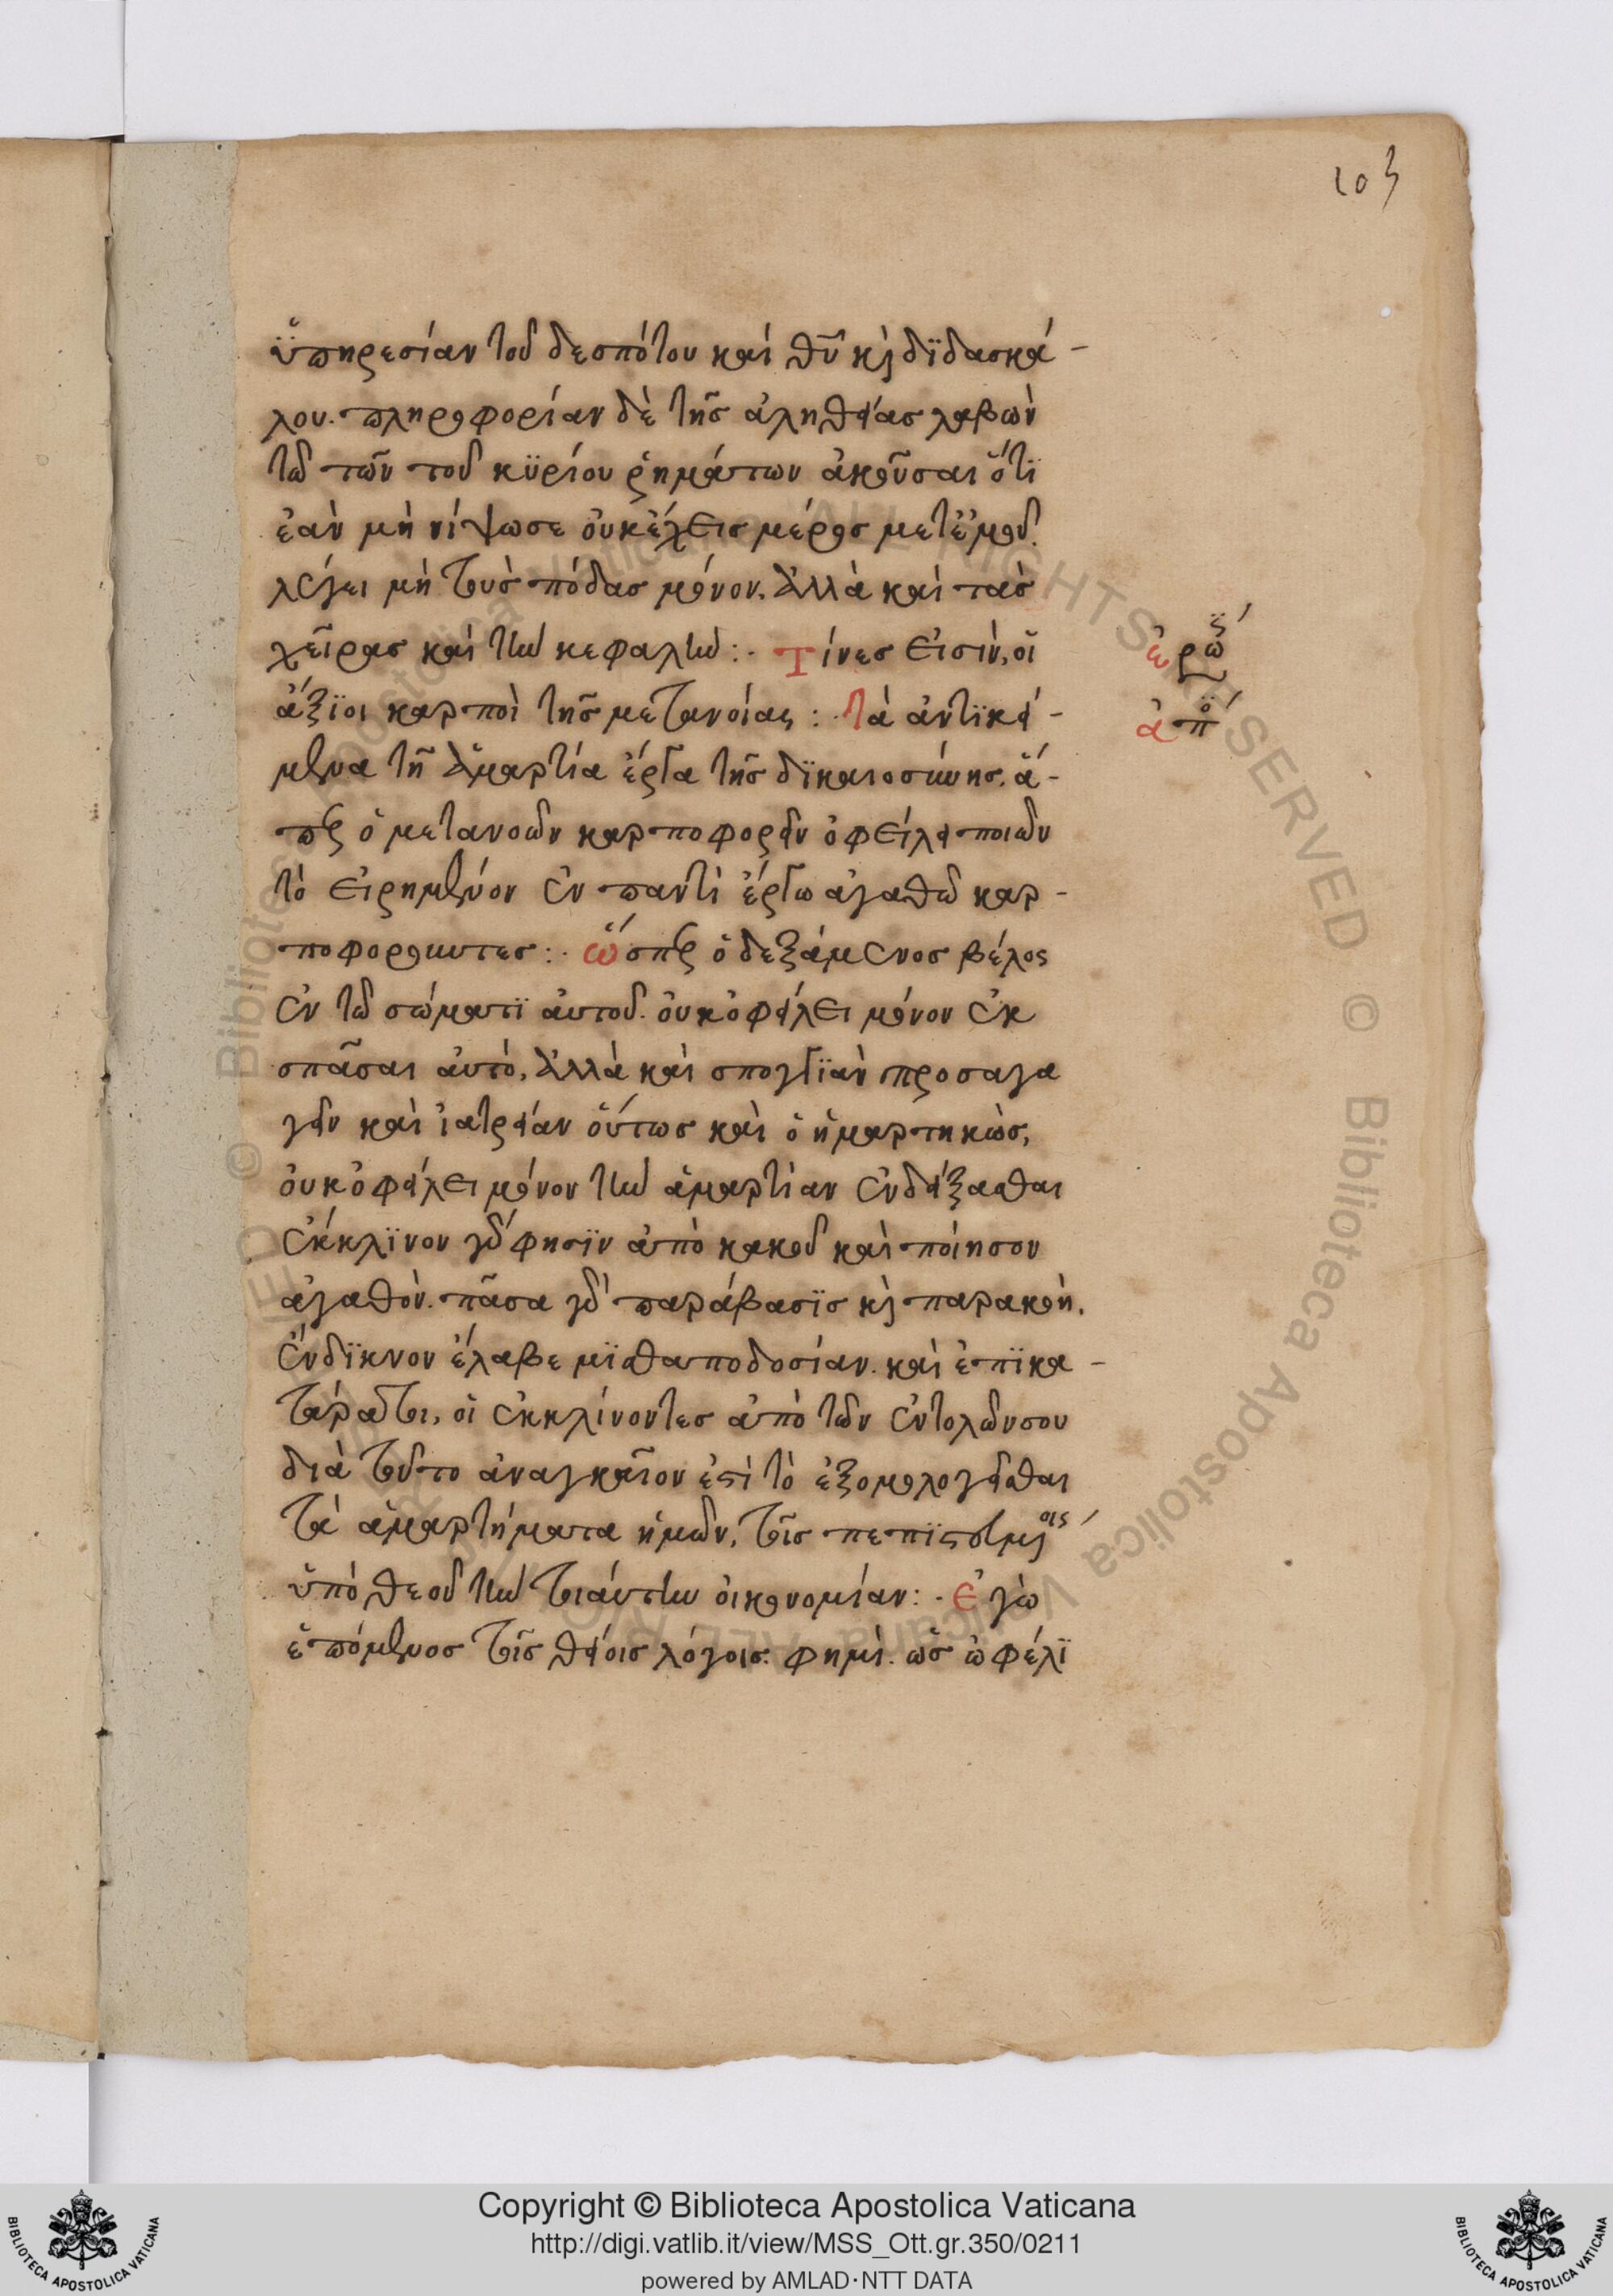 103
ὑπηρεσίαν τοῦ δεσπότου καὶ θῦ κὶ διδασκά-
λου. πληροφορίαν δὲ τῆς ἀληθείας λαβὼν
τῶ τῶν τοῦ κϋρίου ῥημάτων ἀκοῦσαι ὅτϊ
ἐὰν μὴ νίψωσε ὀυκἔχεις μέρος μετἐμοῦ.
λέγει μὴ τοὺς πόδας μόνον. ἀλλὰ καὶ τὰς
χεῖρας καὶ τὴν κεφαλὴν :· Τίνες εἰσὶν, οἱ
ἐρώς
ἄξϊοι καρποὶ τῆς μετανοίας :· τὰ ἀντϊκεί-
ἀπό
μενα τῆ ἁμαρτία ἔργα τῆς δϊκαιοσύνης. ἅ-
περ ὁ μετανοῶν καρποφορεῖν ὀφείλει ποιῶν
τὸ εἰρημένον ἐν παντὶ ἔργω ἀγαθῶ καρ-
ποφοροῦντες :· ὥσπερ ὁ δεξάμενος βέλος
ἐν τῶ σώματϊ ἀυτοῦ. ὀυκὀφείλει μόνον ἐκ
σπᾶσαι ἀυτὸ, ἀλλὰ καὶ σπογγϊὰν προσαγα
γεῖν καὶ ἰατρείαν ὅυτως καὶ ὁ ἡμαρτηκὼς,
ὀυκὀφείλει μόνον τὴν ἁμαρτίαν ἐνδείξασθαι
ἔκκλϊνον γὰρ φησϊν ἀπὸ κακοῦ καὶ ποίησον
ἀγαθὸν. πᾶσα γὰρ παράβασϊς κὶ παρακοὴ.
ἔνδϊκνον ἔλαβε μϊσθαποδοσίαν. καὶ ἐπϊκα-
τάρατοι, οἱ ἐκκλίνοντες ἀπὸ τῶν ἐντολῶνσου
διὰ τοῦτο ἀναγκαῖον ἐστὶ τὸ ἐξομολογεῖσθαι
τὰ ἁμαρτήματα ἡμῶν, τοῖς πεπϊστευμένοις
ὑπὸ θεοῦ τὴν τοιάυτην ὀικονομίαν :· ἐγὼ
ἑπόμενος τοῖς θείοις λόγοις. φημὶ. ὡς ὠφέλϊ
Copyright © Biblioteca Apostolica Vaticana
http://digi.vatlib.it/view/MSS_Ott.gr.350/0211
powered by AMLAD·NTT DATA